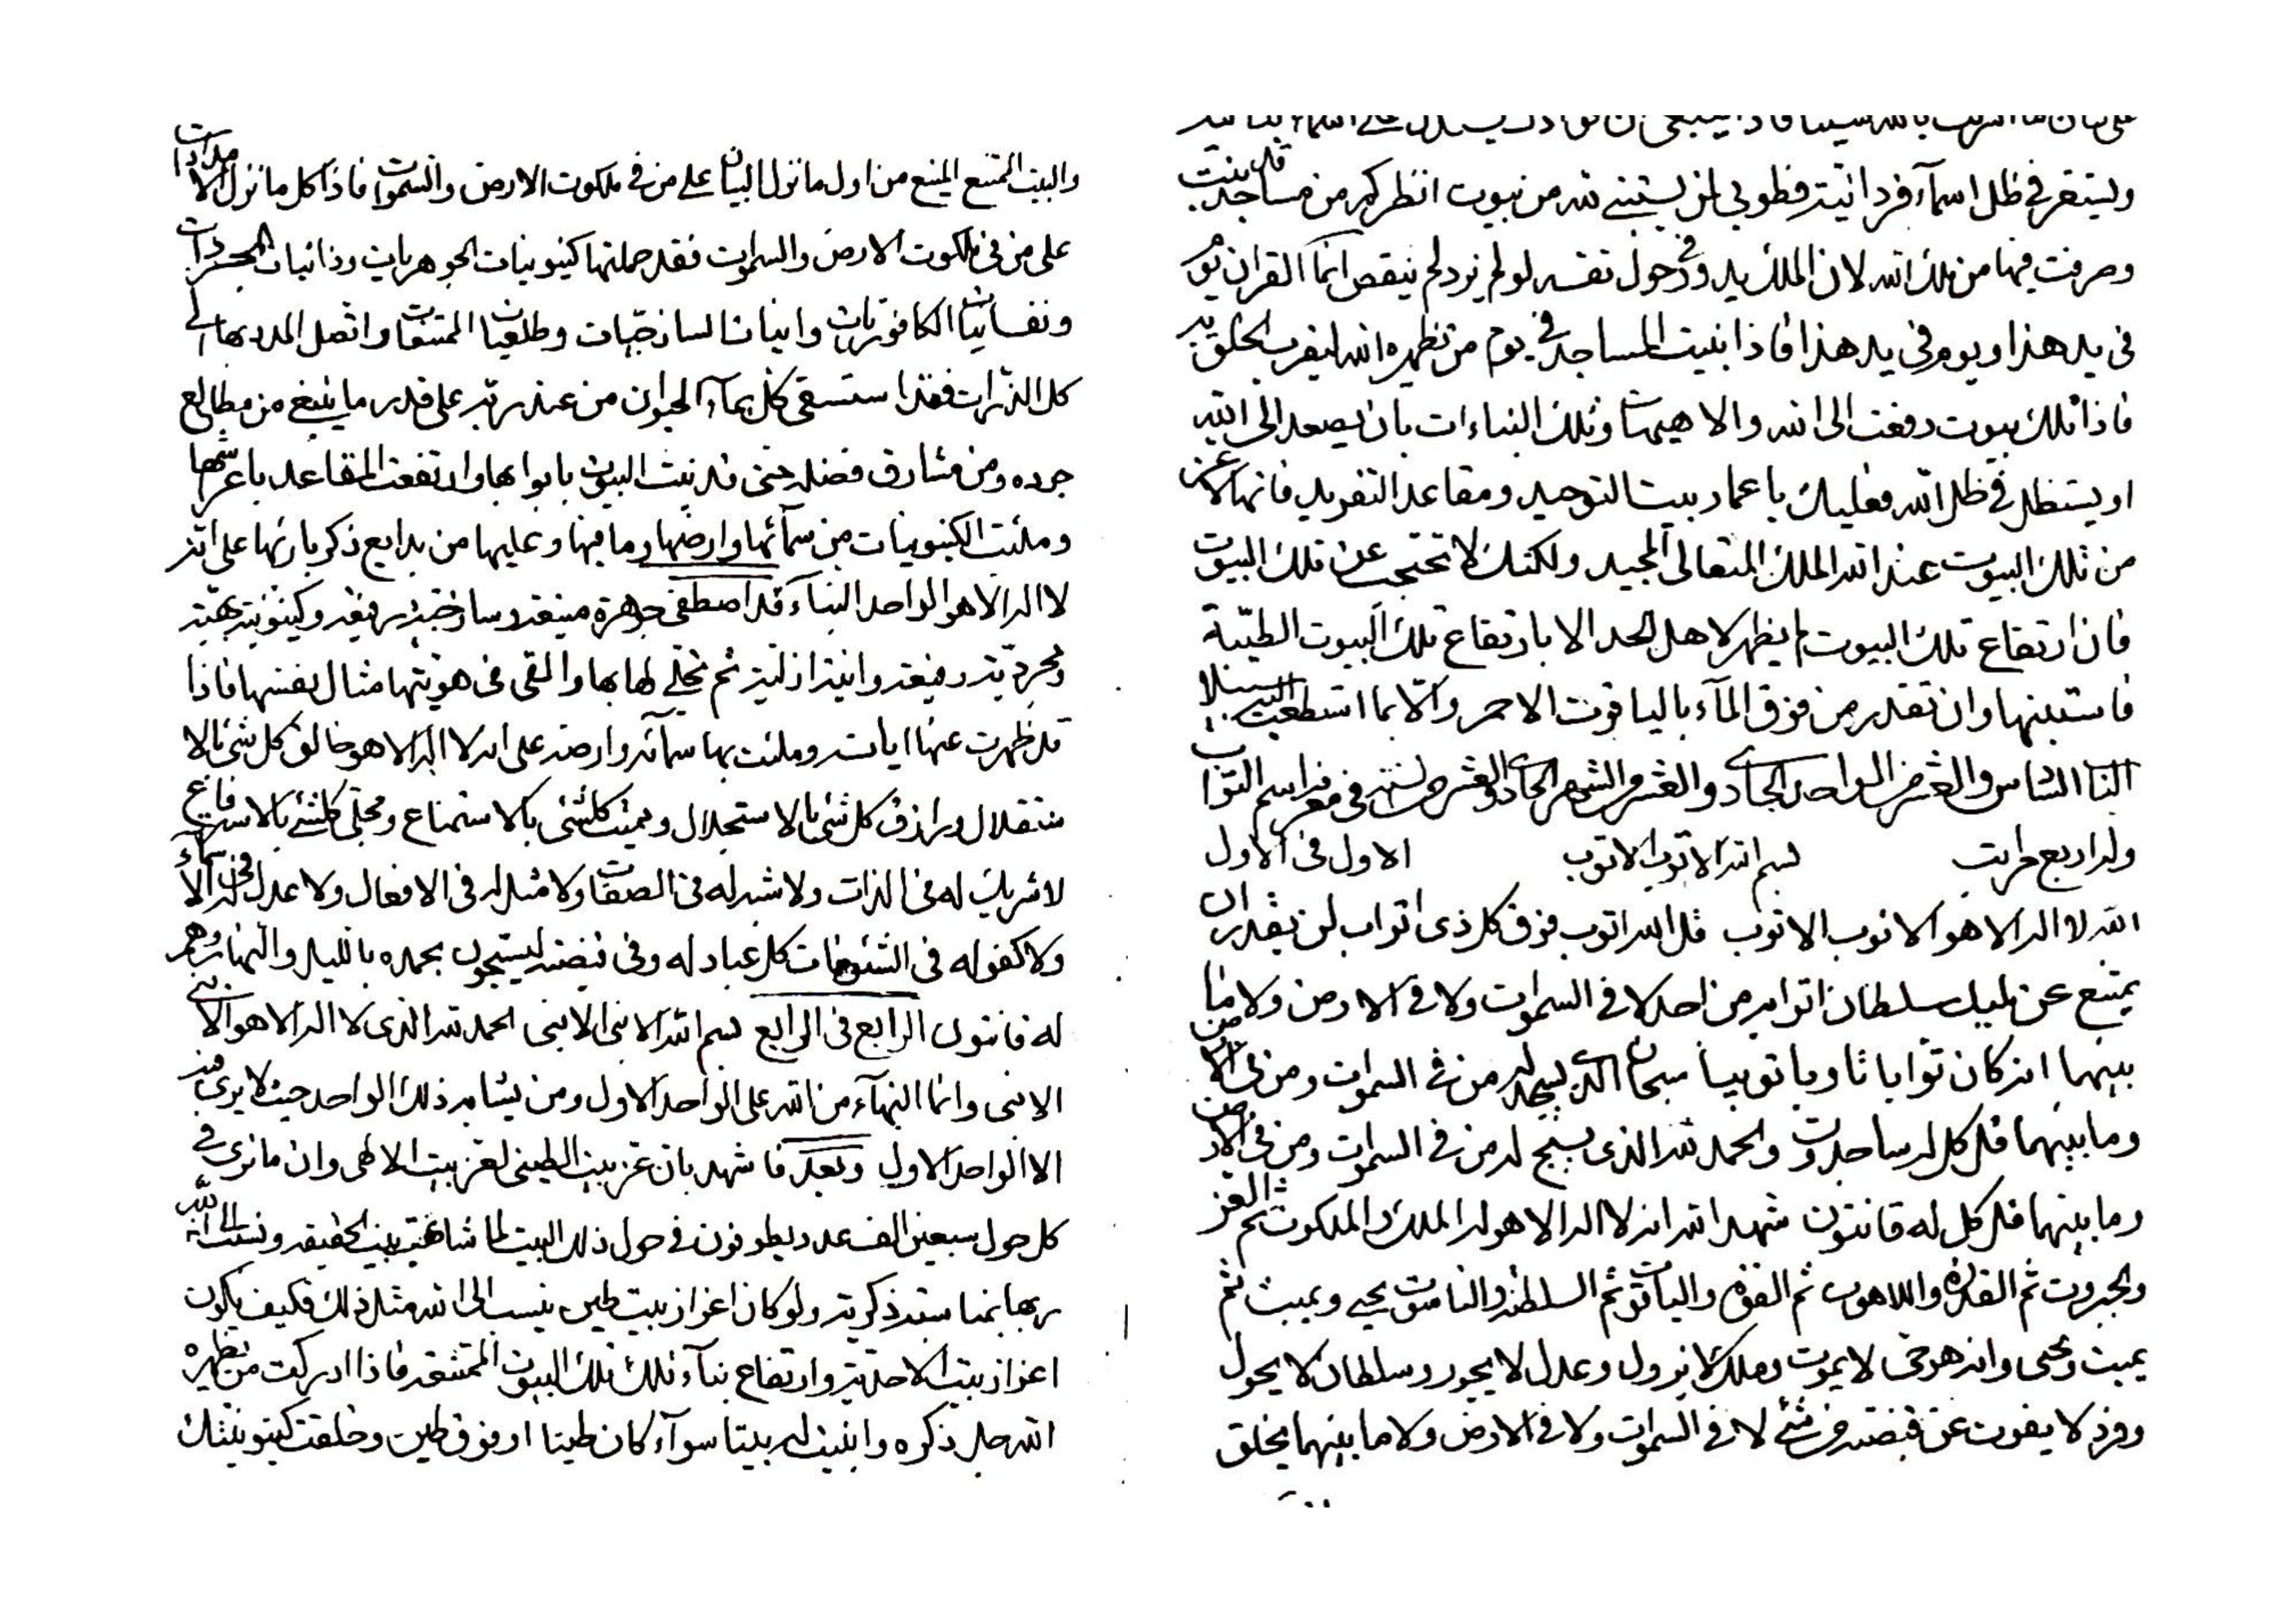 وليستقر في ظل اسمآء فردانيته فطوبى لمن يستبنى لله من بيوت انظر كم من مساجد قد بنيت
وصرفت فيها من ملك الله لان الملك يدور في حول نفسه لو لم يزد لم ينقص انما القران يوم
في يد هذا ويوم في يد هذا فاذا بنيت المساجد في يوم من يظهره الله ليقرب الخلق به
فاذا تلك بيوت رفعت الى الله والا هيهات وتلك البناءات بان يصعد الى الله
او يستظل في ظل الله فعليك يا عمار بيت التوحيد ومقاعد التفريد فانها لاعز
من تلك البيوت عند الله الملك المتعالى المجيد ولكنك لا تحتجب عن تلك البيوت
فان ارتفاع تلك البيوت لم يظهر لاهل الحد الا بارتفاع تلك البيوت الطيبة
فاستبنها وان تقدر من فوق المآء بالياقوت الاحمر والا بما استطعت اليه سبيلا
الباب السادس والعشر من الواحد الحادى والعشر من الشهر الحادى والعشر من السنة في معرفة اسم التواب
وله اربع مراتب بسم الله الاتوب الاتوب الاول في الاول
الله لا اله الا هو الاتوب الاتوب قل الله اتوب فوق كل ذى اتواب لن يقدر ان
يمتنع عن مليك سلطان اتوابه من احد لا في السموات ولا في الارض ولا ما
بينهما انه كان توابا تاوبا تويبا سبحان الذى يسجد له من في السموات ومن في الارض
وما بينهما قل كل له ساجدون والحمد لله الذى يسبح له من في السموات ومن في الارض
وما بينهما قل كل له قانتون شهد الله انه لا اله الا هو له الملك والملكوت ثم العز
والجبروت ثم القدرة واللاهوت ثم القوة والياقوت ثم السلطنة والناسوت يحيى ويميت ثم
يميت ويحيى وانه هو حى لا يموت وملك لا يزول وعدل لا يجور وسلطان لا يحول
وفرد لا يفوت عن قبضته من شئ لا في السموات ولا في الارض ولا ما بينهما يخلق
والبيت الممتنع المنيع من اول ما نزل البيان على من في ملكوت الارض والسموات فاذا كل ما نزل الامدادات
على من في ملكوت الارض والسموات فقد حملتها كينونيات الجوهريات وذاتيات المجردات
ونفسانيات الكافوريات وانيات الساذجيات وطلعات المتنعات واتصل المدد بها الى
كل الذرات فقد استسقى كل بمآء الحيوان من عند ربه على قدر ما ينبغى من مطالع
جوده ومن مشارق فضله حتى قد بنيت البيوت بابوابها وارتفعت المقاعد باعرشها
وملئت الكينونيات من سمآئها وارضها وما فيها وعليها من بدايع ذكر بارئها على انه
لا اله الا هو الواحد البنآء قد اصطفى جوهرة منيعة وساذجية رفيعة وكينونية بهية
ومجردية رفيعة وانية ازلية ثم تجلى لها بها والقى في هويتها مثال نفسها فاذا
قد ظهرت عنها اياته وملئت بها سمآئه وارضه على انه لا اله الا هو خالق كل شئ بالا
ستقلال ورازق كل شئ بالاستجلال ومميت كلشئ بالاستمناع ومحيى كلشئ بالاسترفاع
لا شريك له في الذات ولا شبه له في الصفات ولا مثل له في الافعال ولا عدل له في الاسمآء
ولا كفو له في الشئونات كل عباد له وفي قبضته ليسبحون بحمده بالليل والنهار وهم
له قانتون الرابع في الرابع بسم الله الابنى الابنى الحمد لله الذى لا اله الا هو الابنى
الابنى وانما البهآء من الله على الواحد الاول ومن يشابه ذلك الواحد حيث لا يرى فيه
الا الواحد الاول وبعد فاشهد بان عز بيت الطينى لعز بيت الالهى وان ما ترى في
كل حول سبعين الف عدد يطوفون في حول ذلك البيت لما شائت بيت الحقيقة ونسبت الى الله
ربها بمناسبة ذكرية ولو كان اعزاز بيت طين ينسب الى الله مثل ذلك فكيف يكون
اعزاز بيت الاحدية وارتفاع بنآء تلك البيوت الممتنعة فاذا ادركت من يظهره
الله جل ذكره وابنيت له بيتا سوآء كان طينا او فوق طين وخلقت كينونيتك